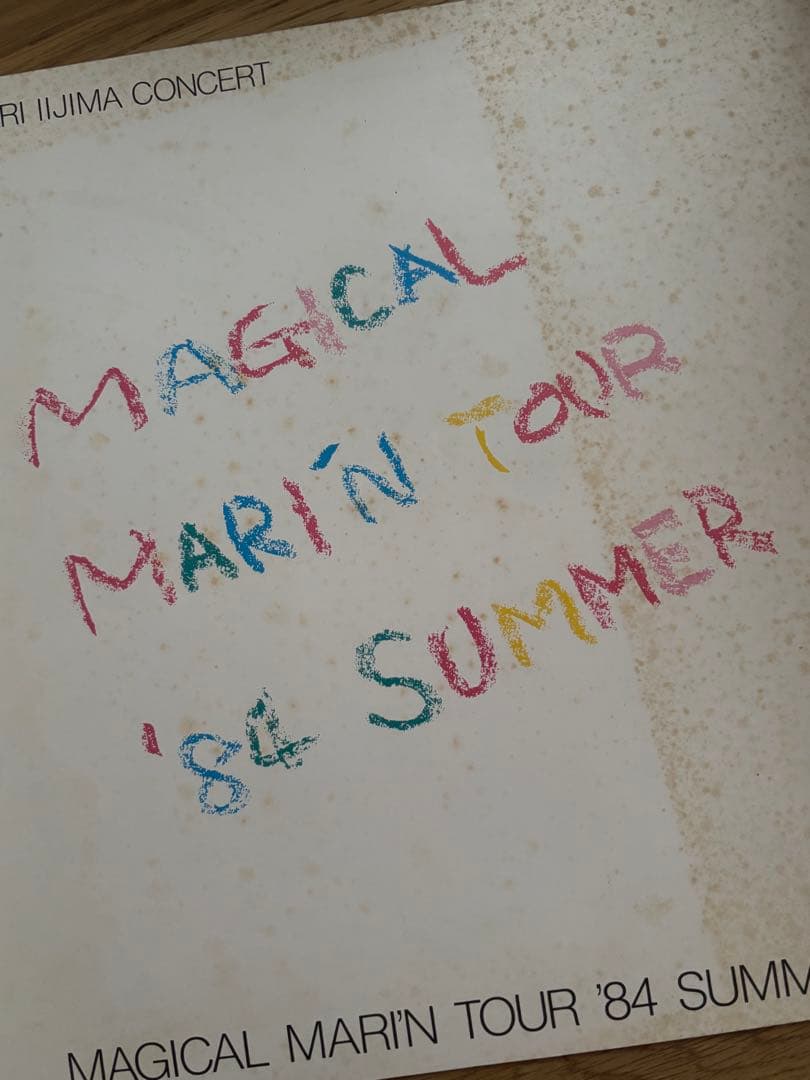 RI IIJIMA CONCERT
MAGICAL
MARI'N TOUR
'84 SUMMER
MAGICAL MARI'N TOUR '84 SUMM